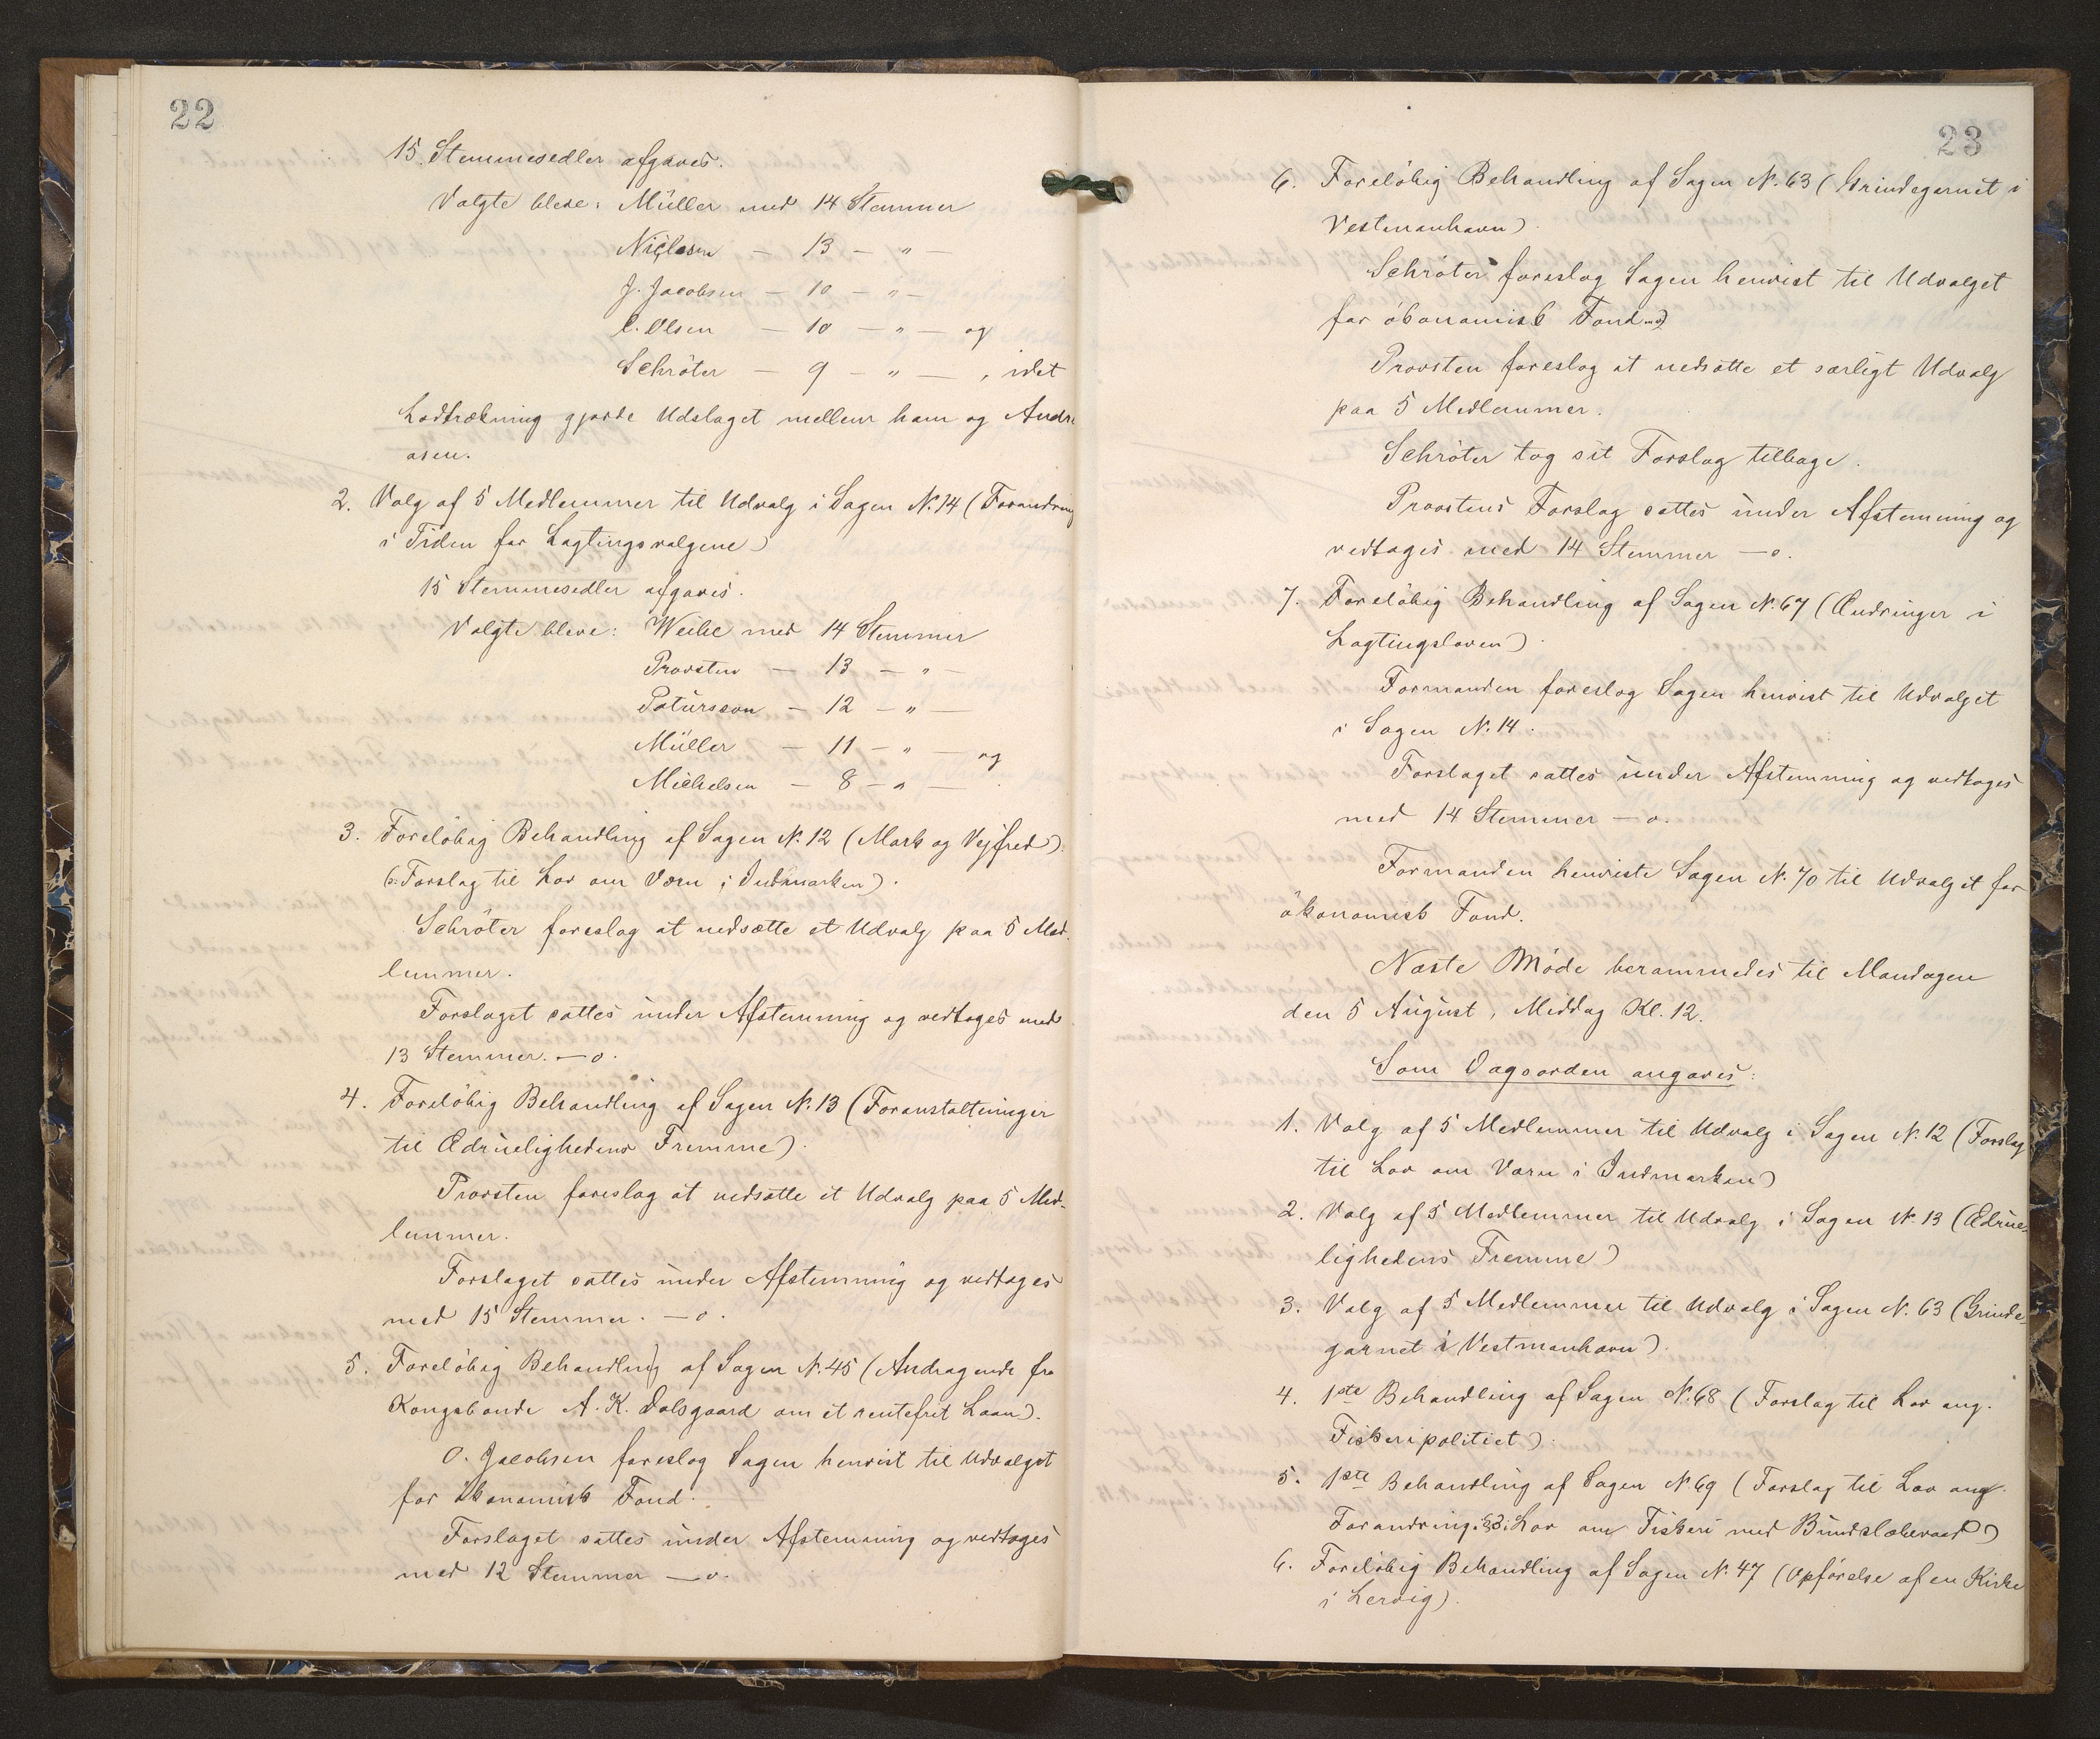 22
15. Stemmesedler afgaves.
Valgte bleve: Müller med 14 Stemmer
Niclasen — 13 — " —
J. Jacobsen — 10 — " —
C. Olsen — 10 — " — og
Schröter — 9 — " — , idet
Lodtrækning gjorde Udslaget mellem ham og Andre
asen.
2. Valg af 5 Medlemmer til Udvalg i Sagen N. 14 (Forandring
i Tiden for Lagtingsvalgene)
15 Stemmesedler afgaves.
Valgte bleve: Weihe med 14 Stemmer
Provsten — 13 — " —
Patursson — 12 — " —
Müller — 11 — " — og
Michelsen — 8 — " — .
3. Foreløbig Behandling af Sagen N. 12 (Mark og Vejfred)
(o: Forslag til Lov om Værn i Indmarken).
Schröter foreslog at nedsætte et Udvalg paa 5 Med-
lemmer.
Forslaget sattes under Afstemning og vedtoges med
13 Stemmer. — o.
4. Foreløbig Behandling af Sagen N. 13 (Foranstaltninger
til Ædruelighedens Fremme).
Provsten foreslog at nedsætte et Udvalg paa 5 Med-
lemmer.
Forslaget sattes under Afstemning og vedtoges
med 15 Stemmer. — o.
5. Foreløbig Behandling af Sagen N. 45 (Andragende fra
Kongsbonde A. K. Dalsgaard om et rentefrit Laan).
O. Jacobsen foreslog Sagen henvist til Udvalget
for økonomisk Fond.
Forslaget sattes under Afstemning og vedtoges
med 12 Stemmer — o.
23
6. Foreløbig Behandling af Sagen N. 63 (Grindegarnet i
Vestmanhavn).
Schröter foreslog Sagen henvist til Udvalget
for økonomisk Fond
Provsten foreslog at nedsætte et særligt Udvalg
paa 5 Medlemmer.
Schröter tog sit Forslag tilbage.
Provstens Forslag sattes under Afstemning og
vedtoges med 14 Stemmer — o.
7. Foreløbig Behandling af Sagen N. 67 (Ændringer i
Lagtingsloven).
Formanden foreslog Sagen henvist til Udvalget
i Sagen N. 14.
Forslaget sattes under Afstemning og vedtoges
med 14 Stemmer — o.
Formanden henviste Sagen N. 70 til Udvalget for
økonomisk Fond.
Næste Møde berammedes til Mandagen
den 5 August, Middag Kl. 12.
Som Dagsorden angaves:
1. Valg af 5 Medlemmer til Udvalg i Sagen N. 12 (Forslag
til Lov om Værn i Indmarken)
2. Valg af 5 Medlemmer til Udvalg i Sagen N. 13 (Ædrue-
lighedens Fremme)
3. Valg af 5 Medlemmer til Udvalg i Sagen N. 63 (Grinde-
garnet i Vestmanhavn).
4. 1ste Behandling af Sagen N. 68 (Forslag til Lov ang.
Fiskeripolitiet).
5. 1ste Behandling af Sagen N. 69 (Forslag til Lov ang.
Forandring i § 3 i Lov om Fiskeri med Bundslæbevaad)
6. Foreløbig Behandling af Sagen N. 47 (Opførelse af en Kirke
i Lervig).